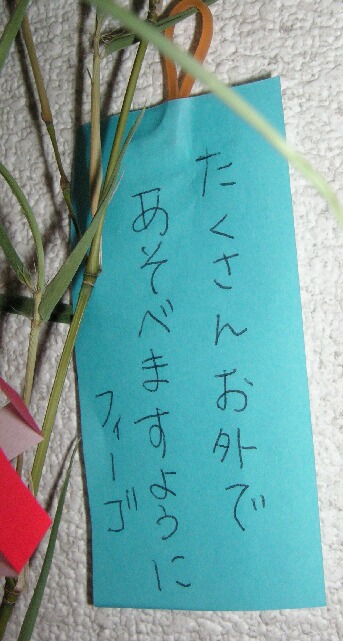 たくさんお外で
あそべますように
フィーゴ